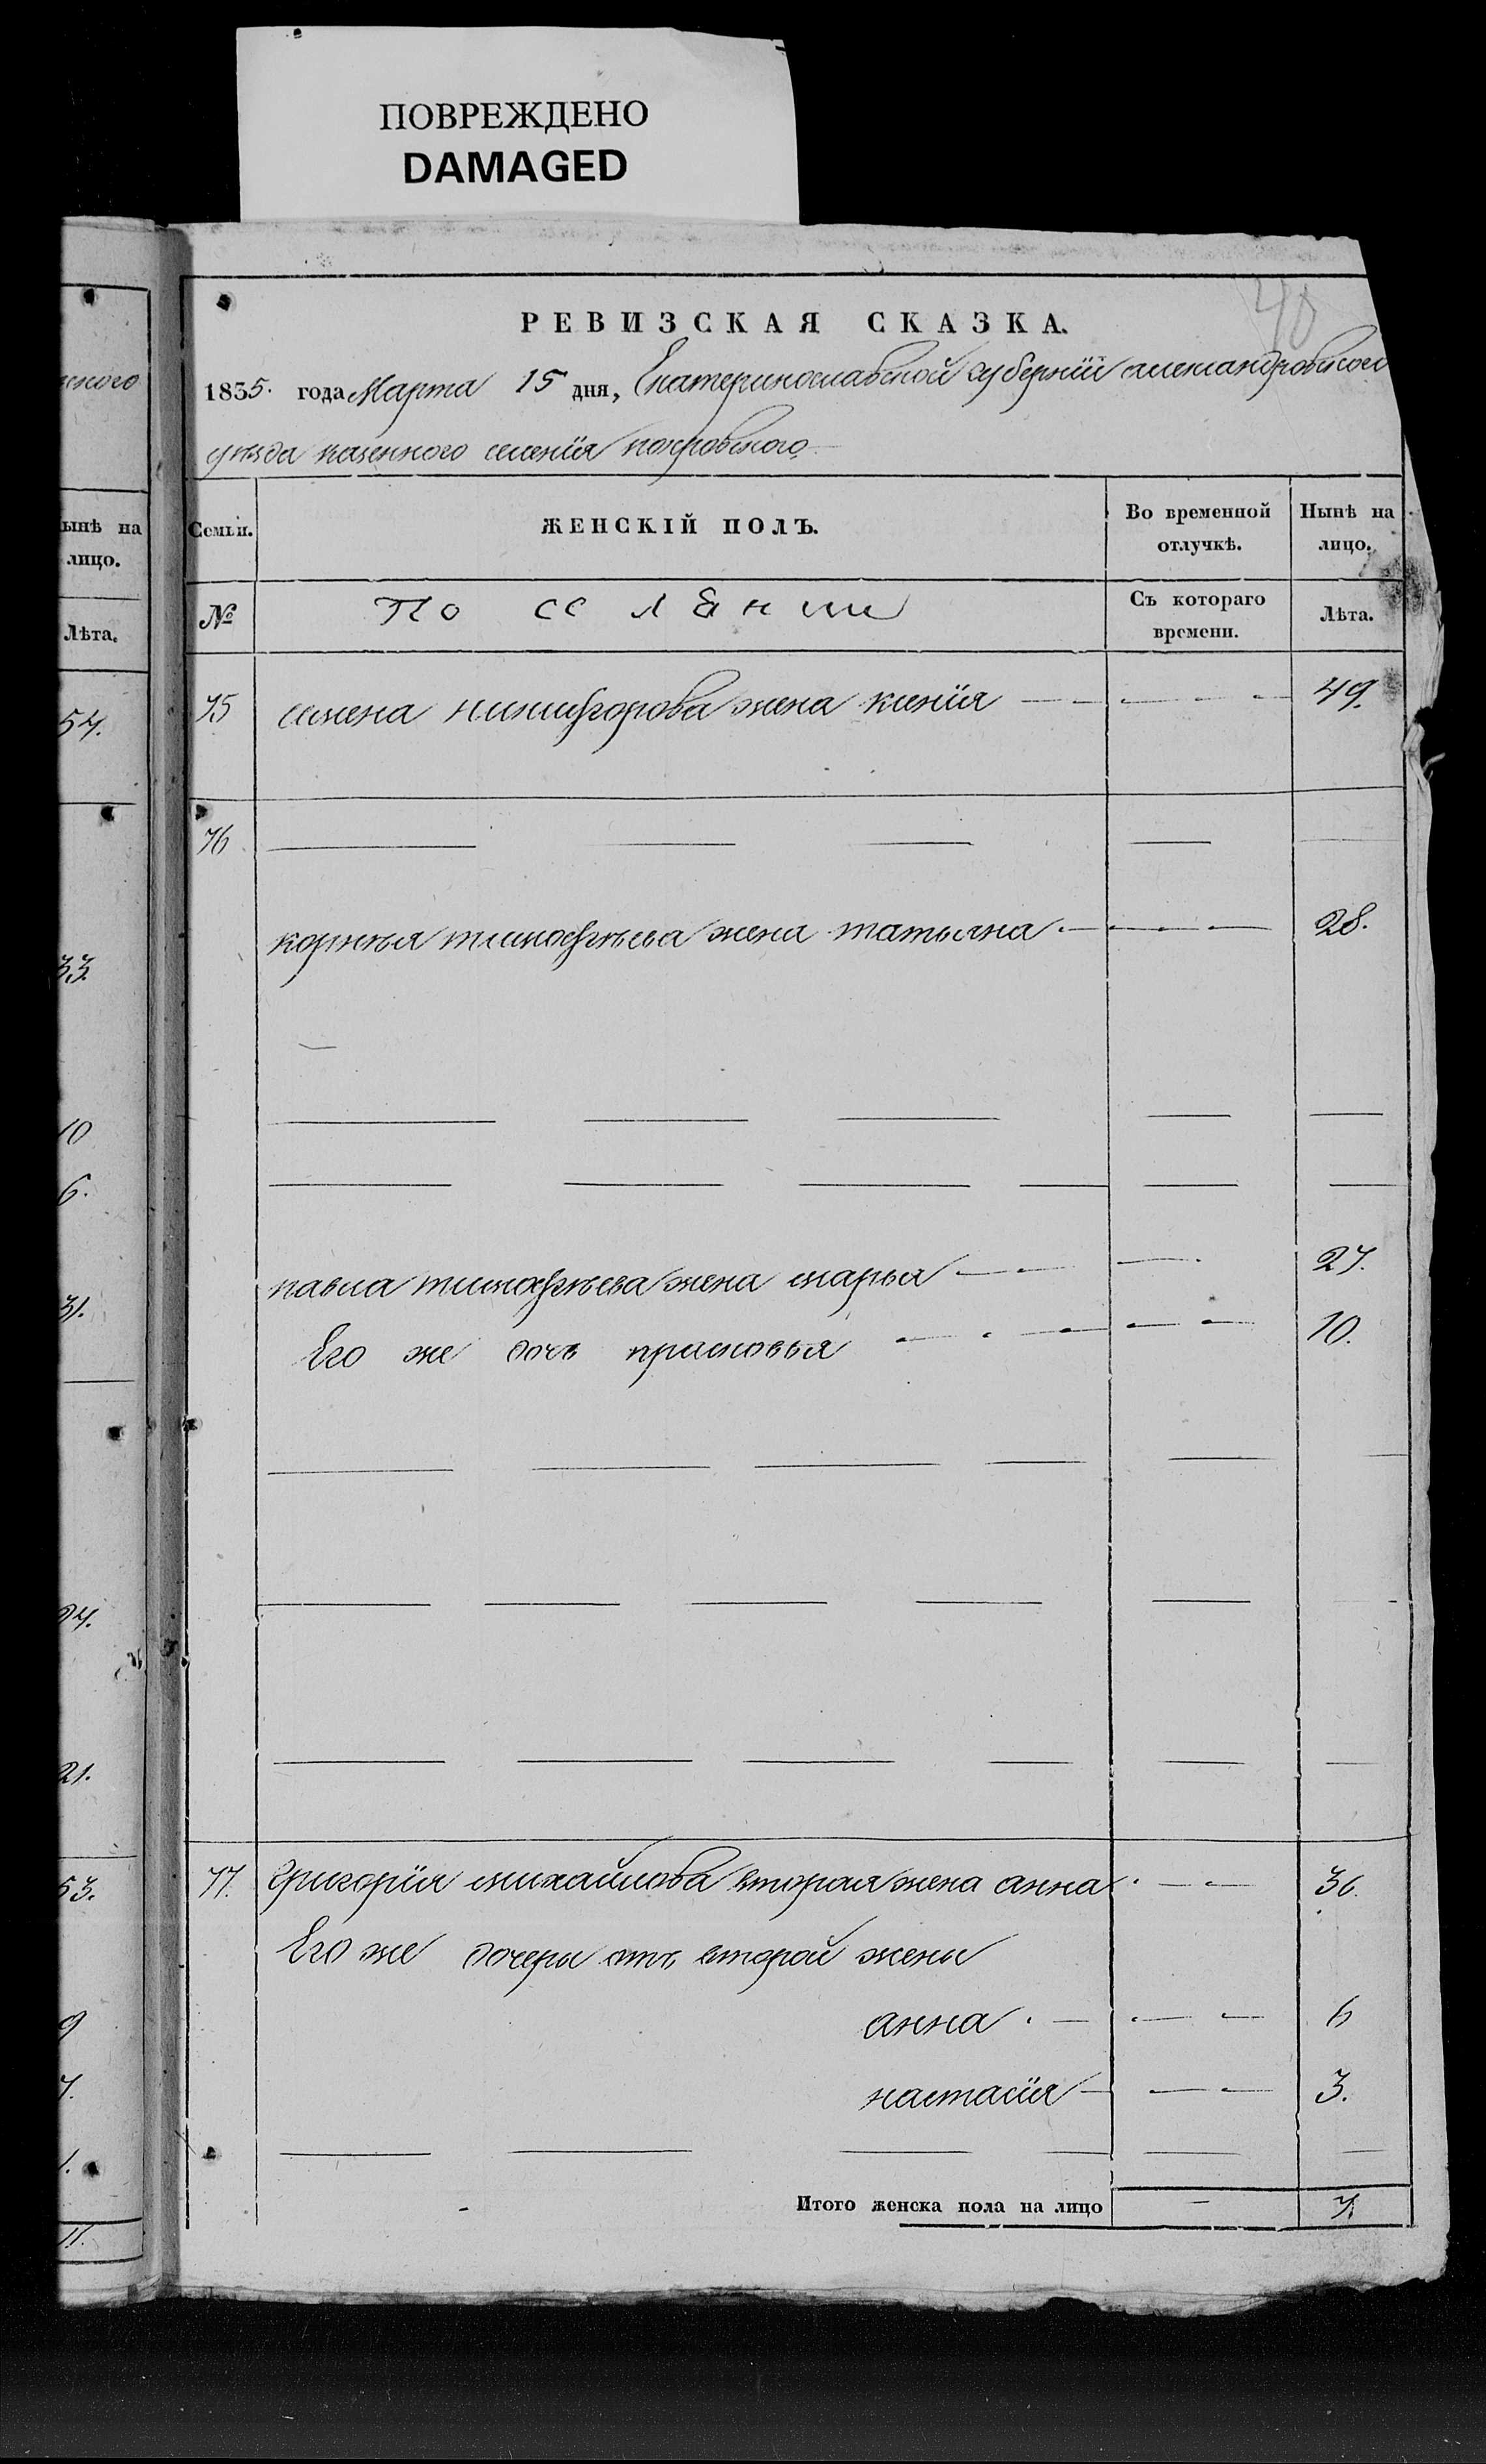 ПОВРЕЖДЕНО
DAMAGED
40
РЕВИЗСКАЯ СКАЗКА.
1835. года Марта 15 дня, Екатеринославской губернїи александровского
уезда казенного селенїя покровского
Семьи.
ЖЕНСКІЙ ПОЛЪ.
Во временной отлучкѣ.
Нынѣ на лицо.
№
Съ котораго времени.
Лѣта.
75 семена никифорова жена ксенїя 49.
76
корнѣя тимофѣева жена татьяна 28.
павла тимофѣева жена марья 27.
Его же дочь прасковья 10.
77. григорїя михайлова вторая жена анна 36.
Его же дочери отъ второй жены
анна 6
настасїя 3.
Итого женска пола на лицо — 7.
ского
ынѣ на
лицо.
Лѣта.
54.
33.
10
6.
31.
21.
53.
9
7.
1.
11.